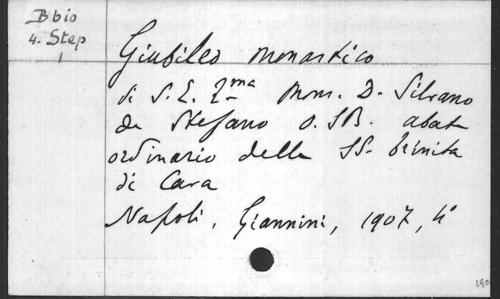 Bbio
4. Step
1
Giubileo monastico
di S. E. Ill.ma Mons. D. Silvano
de Stefano O.SB. abate
ordinario della SS. trinita
di Cava
Napoli, Giannini, 1907, 4°
190